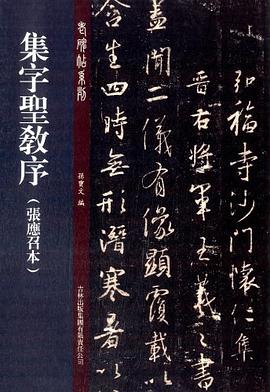 弘福寺沙門懷仁集
晉右將軍王羲之書
蓋聞二儀有像顯覆載以
含生四時無形潛寒暑以
老碑帖系列
孫寶文 編
吉林出版集團有限責任公司
集字聖教序
（張應召本）